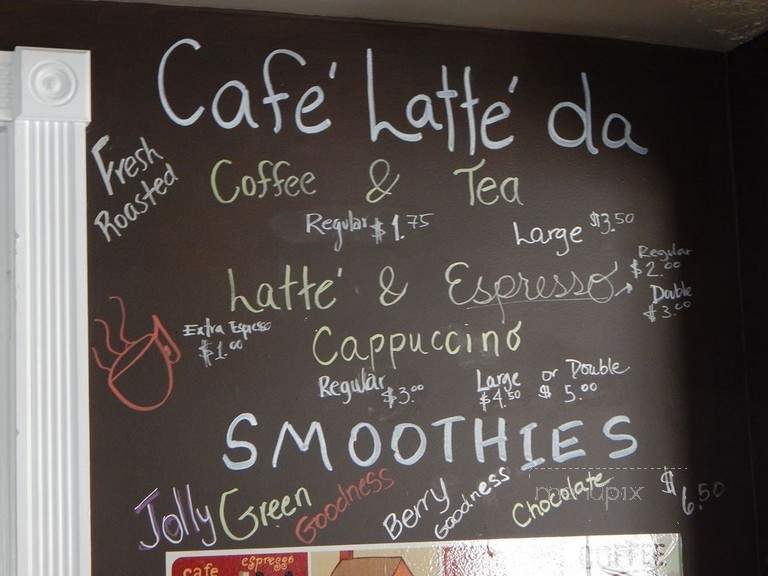 Café Latté da
Fresh
Roasted
Coffee & Tea
Regular $1.75
Large $3.50
Latté & Espresso
Regular
$2.00
Double
$3.00
Extra Espresso
$1.00
Cappuccino
Regular $3.00
Large $4.50
or Double $5.00
SMOOTHIES
Jolly Green Goodness
Berry Goodness
Chocolate
$6.50
menupix
cafe
espresso
COFFEE